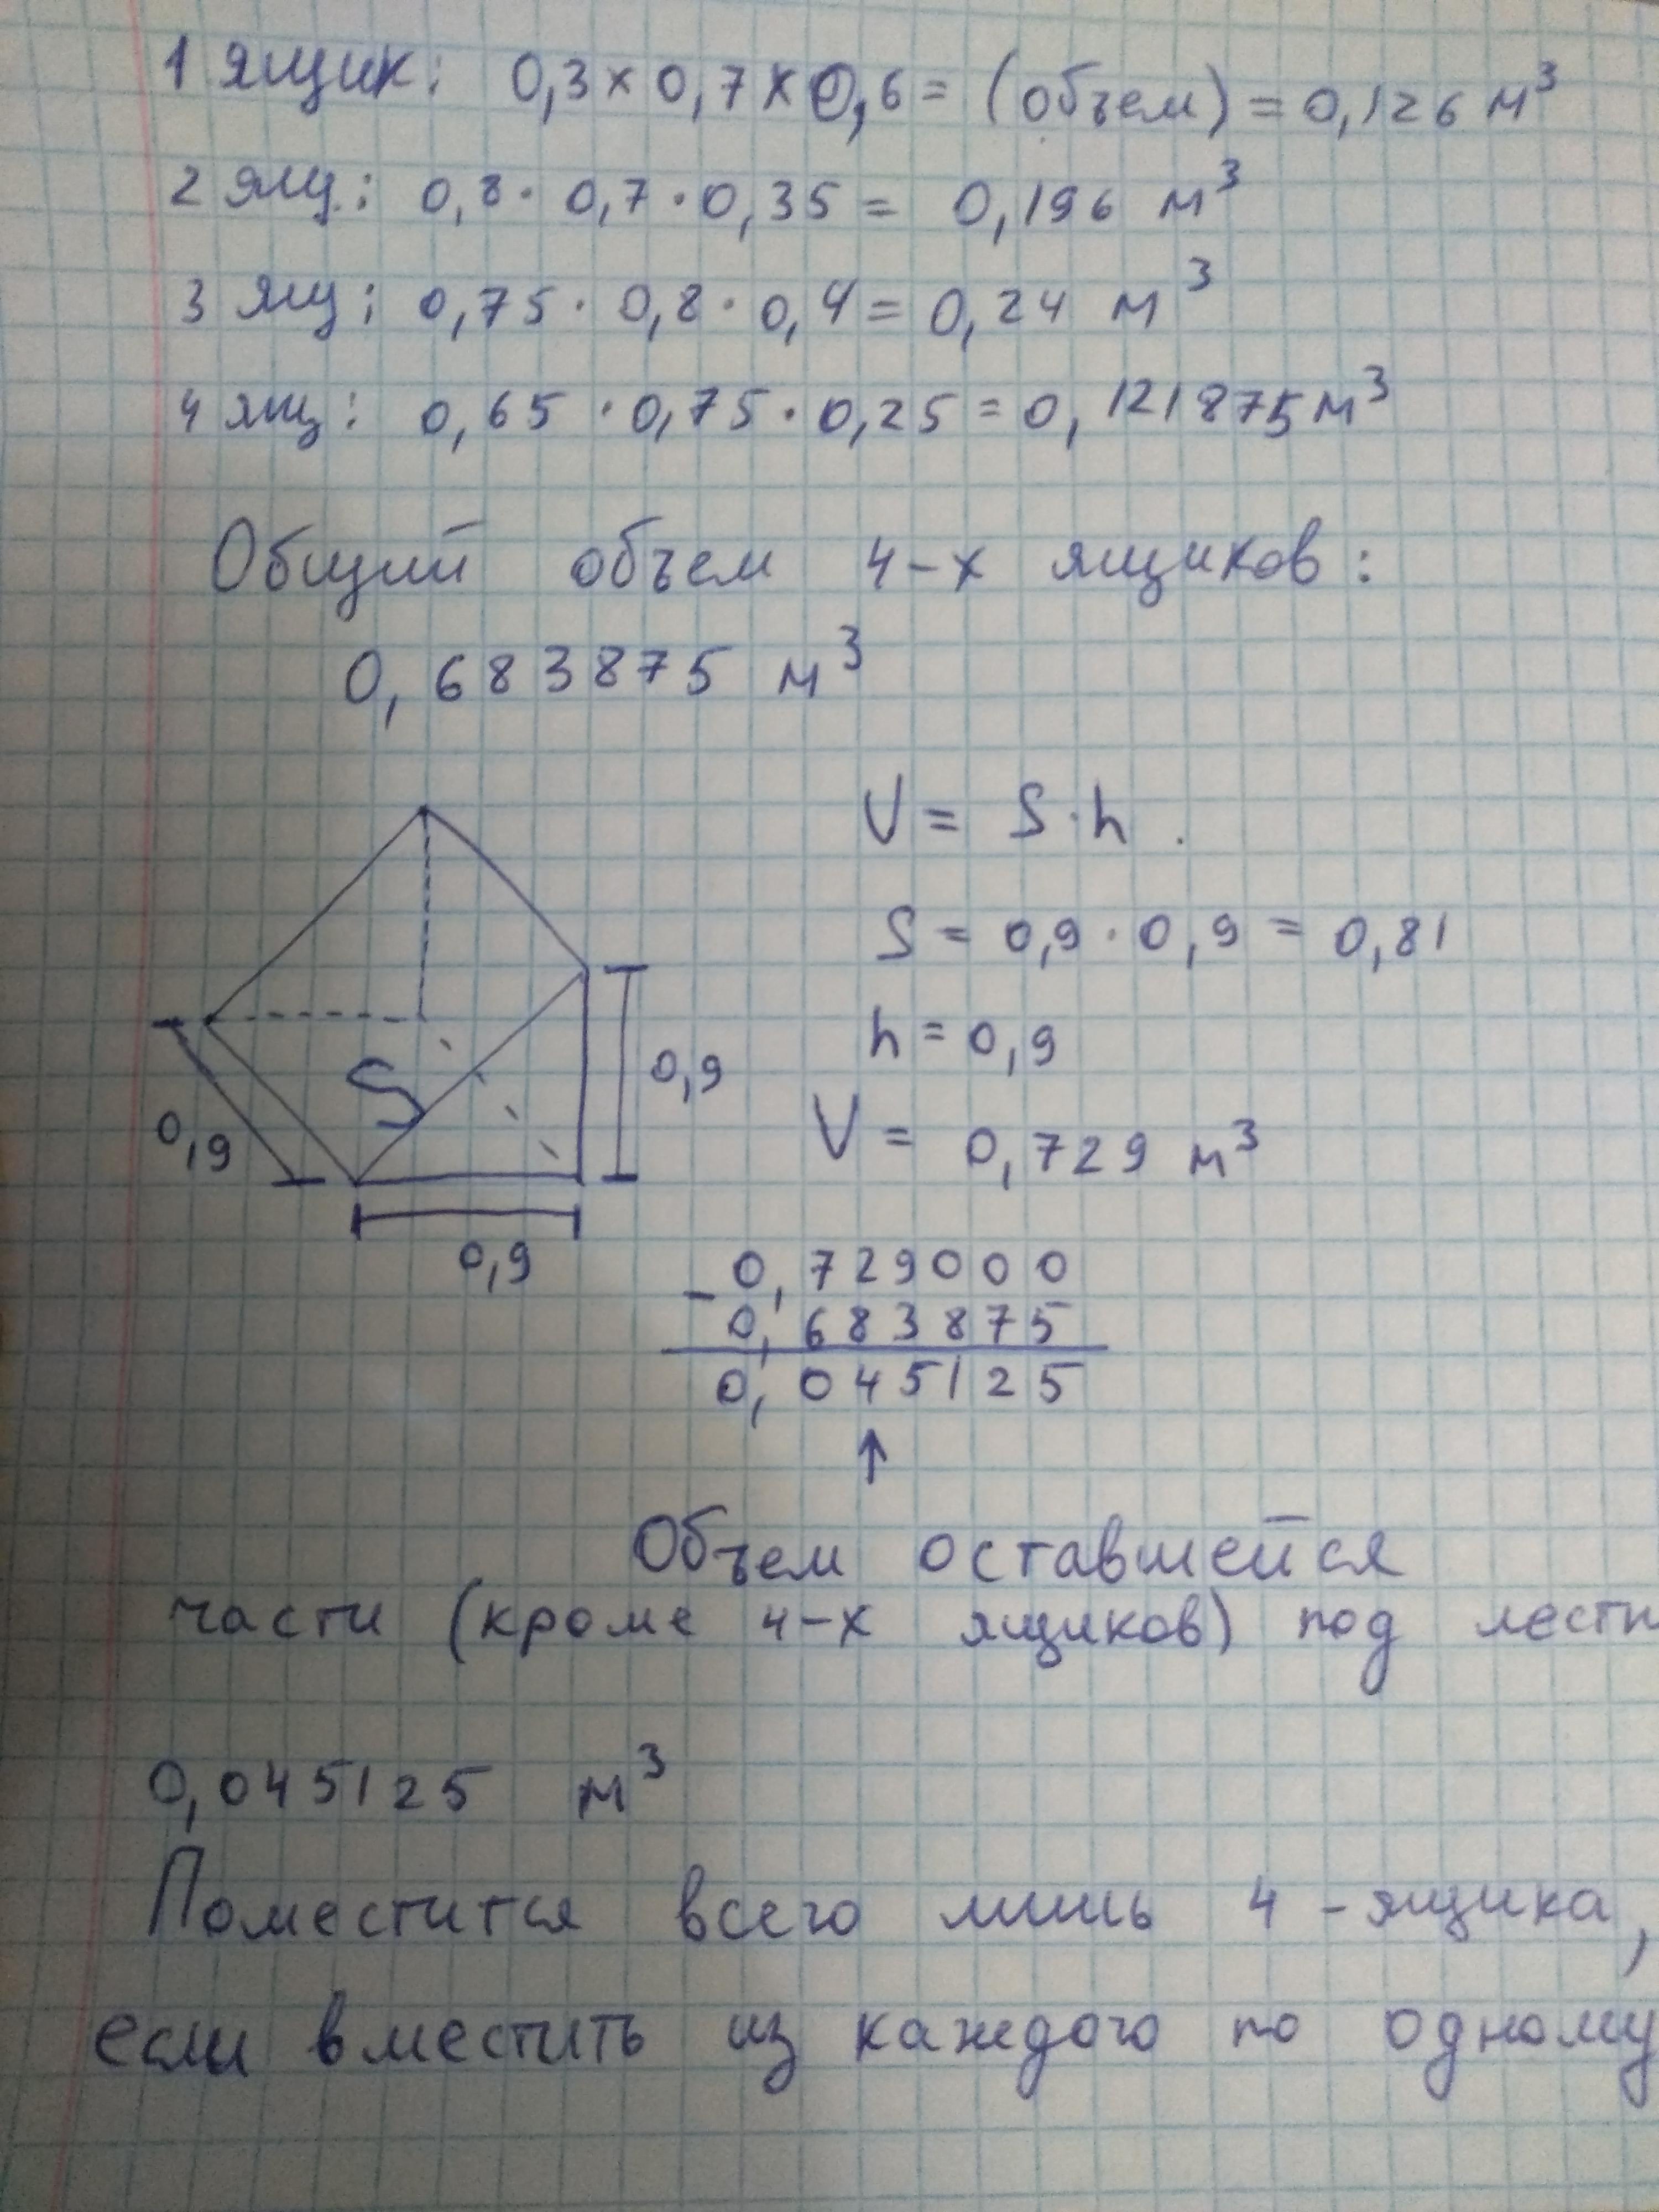 1 ящик: 0,3 x 0,7 x 0,6 = (объем) = 0,126 м³
2 ящ.: 0,8 · 0,7 · 0,35 = 0,196 м³
3 ящ: 0,75 · 0,8 · 0,4 = 0,24 м³
4 ящ: 0,65 · 0,75 · 0,25 = 0,121875 м³
Общий объем 4-х ящиков:
0,683875 м³
V = S · h .
S = 0,9 · 0,9 = 0,81
h = 0,9
V = 0,729 м³
S
0,9
0,9
0,9
- 0,729000
0,683875
0,045125
↑
Объем оставшейся
части (кроме 4-х ящиков) под лестн
0,045125 м³
Поместится всего лишь 4 - ящика,
если вместить из каждого по одному